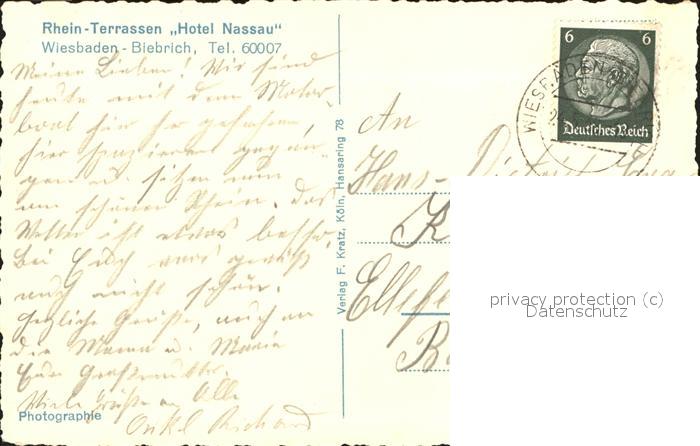 Rhein-Terrassen „Hotel Nassau“
Wiesbaden-Biebrich, Tel. 60007
Meine Lieben! Wir sind
heute mit dem Motor-
boot hier her gefahren,
hier spazieren gegan-
gen u. sitzen nun
am schönen Rhein. Das
Wetter ist etwas besser,
bei Euch war's gewiß
auch nicht schön.
Herzliche Grüße, auch an
die Mama u. Maria
Eure Großmutter.
Viele Grüße an Alle
Onkel Richard
Photographie
Verlag F. Kratz, Köln, Hansaring 78
6 6
Deutsches Reich
WIESBADEN
An
Hans-Dietrich
privacy protection (c)
Datenschutz